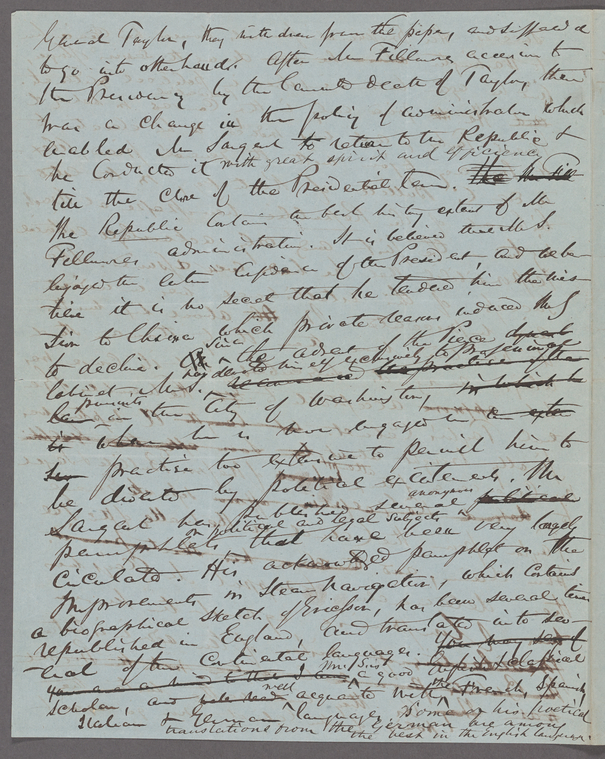 Genl Taylor, they withdrew from the paper, and suffered it
to go into other hands. After Mr Fillmores accession to
the Presidency by the lamented death of Taylor, there
was a change in the policy of administration which
enabled Mr Sargent to return to the Republic &
he conducted it with great spirit and efficiency
till the close of the Presidential term.
The Republic contains the best history extant of Mr
Fillmores administration. It is believed that Mr S.
enjoyed the entire confidence of the President, and we be-
lieve it is no secret that he tendered him the mis-
sion to China which private reasons induced Mr S
to decline. Since the advent of the Pierce
cabinet Mr S. has devoted himself exclusively to professional
pursuits in the City of Washington,
he is now engaged in a
practise too extensive to permit him to
be diverted by political excitements. Mr
Sargent has published several anonymous
pamphlets on political and legal subjects that have been very largely
circulated. His acknowledged pamphlet on the
Improvements in Steam Navigation, which contains
a biographical sketch of Ericsson, has been several times
republished in England, and translated into sev-
eral of the continental languages.
Mr S is a good classical
scholar, and well acquainted with the French, Spanish
Italian & German languages. Some of his poetical
translations from the German are among
the best in the English language.